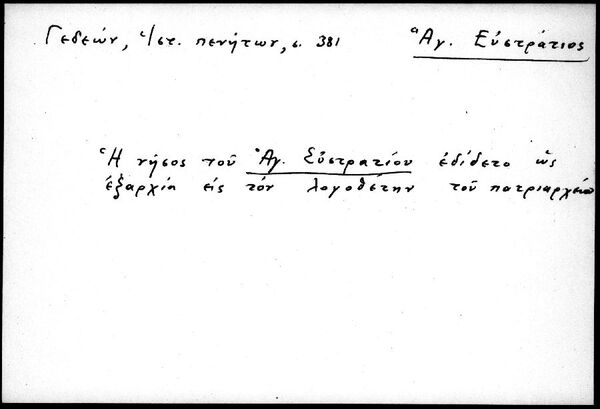 Γεδεών, Ἱστ. πενήτων, σ. 381
Ἅγ. Εὐστράτιος
Ἡ νῆσος τοῦ Ἁγ. Εὐστρατίου ἐδίδετο ὡς
ἐξαρχία εἰς τὸν λογοθέτην τοῦ πατριαρχείου